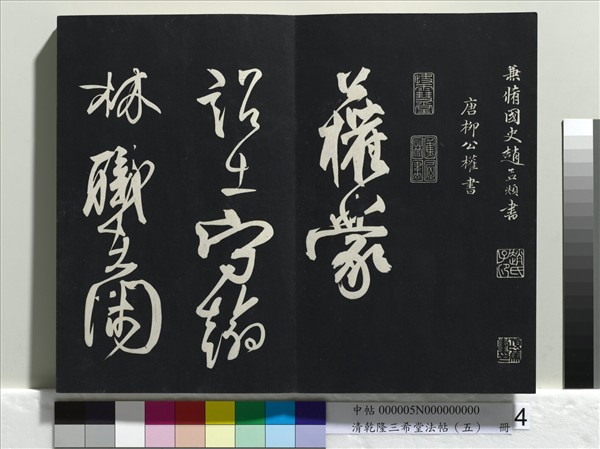 兼脩國史趙孟頫書
唐柳公權書
公權蒙
詔出守翰
林職在閑
中帖 000005N000000000
清乾隆三希堂法帖（五） 冊 4